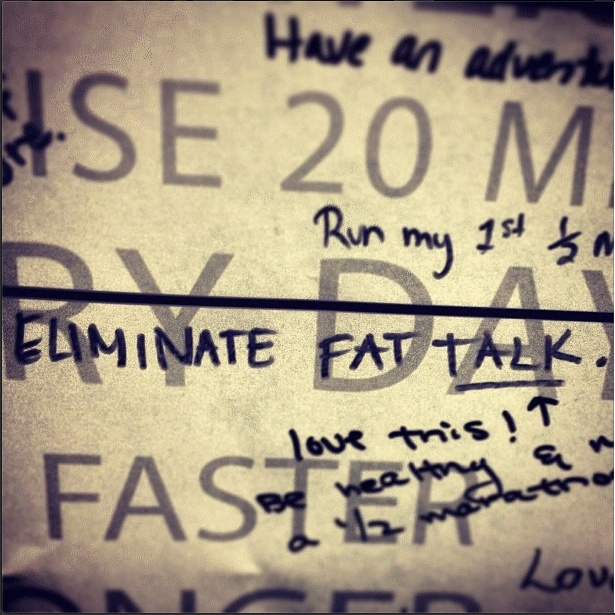 Have an adventu
ISE 20 MI
ure.
Run my 1st ½ m
RY DAY
ELIMINATE FAT TALK.
love this! ↑
Be healthy & n
FASTER
a 1/2 maratho
Lov
ONGER